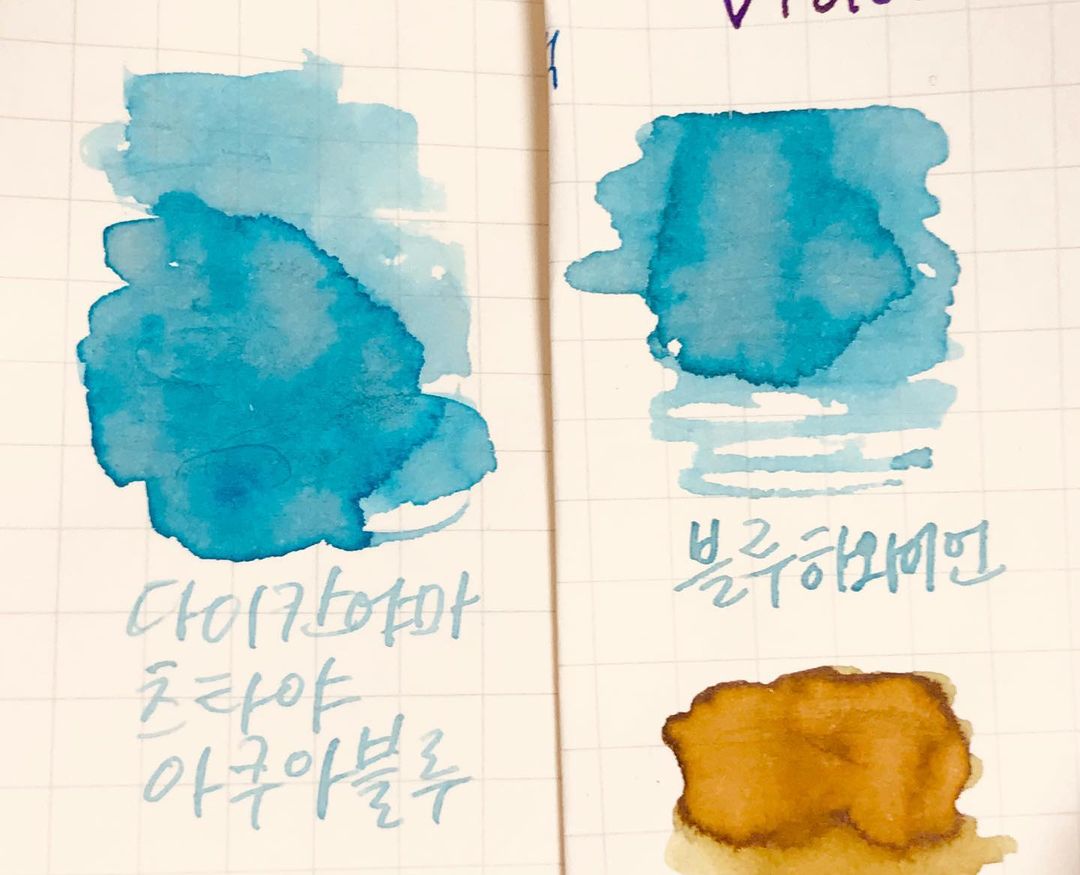 다이칸야마
츠타야
아쿠아블루
블루하와이언